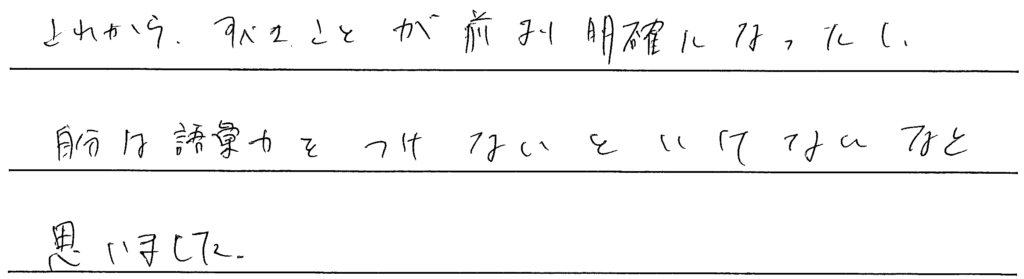 これから、すべきことが前より明確になったし、
自分は語彙力をつけないといけないなと
思いました。